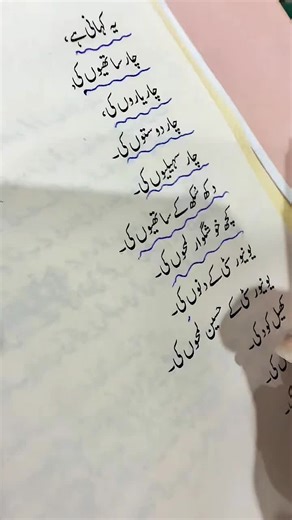 یہ کہانی ہے،
چار ساتھیوں کی،
چار یاروں کی،
چار دوستوں کی۔
چار سہیلیوں کی۔
دکھ سکھ کے ساتھیوں کی۔
کچھ خوشگوار لمحوں کی۔
یونیورسٹی کے دنوں کی۔
یونیورسٹی کے حسین لمحوں کی۔
کھیل کود کی۔
کی۔